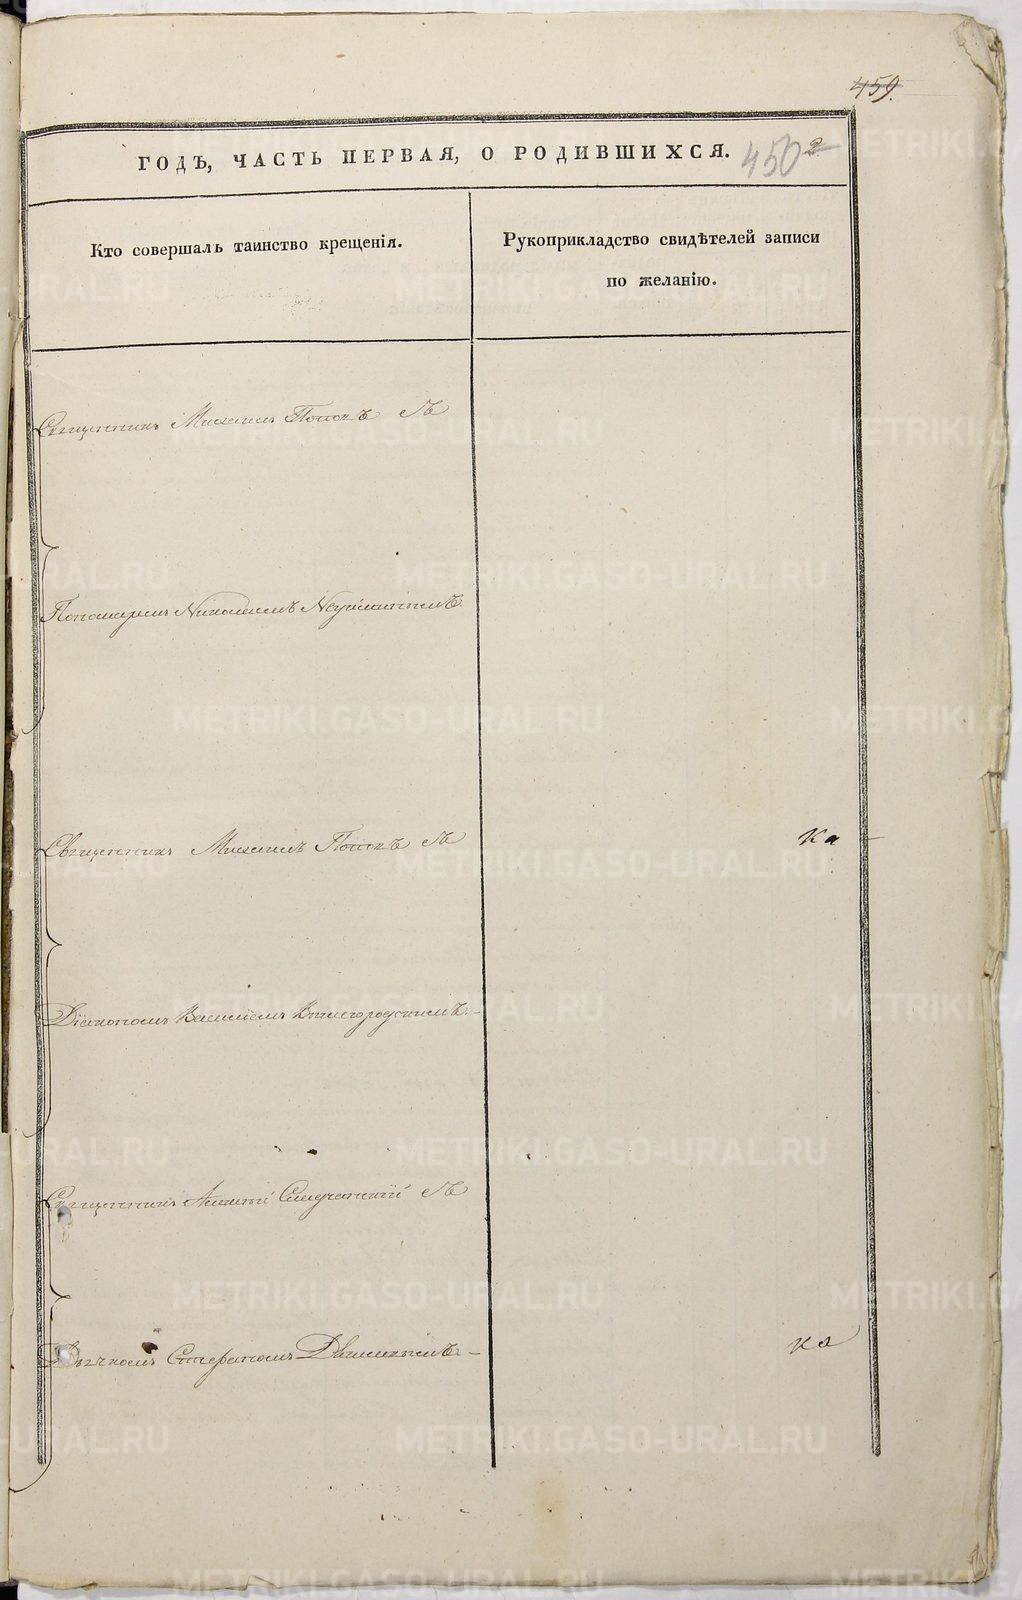 459.
ГОДЪ, ЧАСТЬ ПЕРВАЯ, О РОДИВШИХСЯ. 450
Кто совершалъ таинство крещенія.
Рукоприкладство свидѣтелей записи
по желанію.
Священникъ Михаилъ Поповъ съ
Пономаремъ Николаемъ
Священникъ Михаилъ Поповъ съ
ка
Діакономъ Василіемъ Вышегородскимъ.-
Священникъ съ
Дьячкомъ Стефаномъ -
ка
METRIKI.GASO-URAL.RU